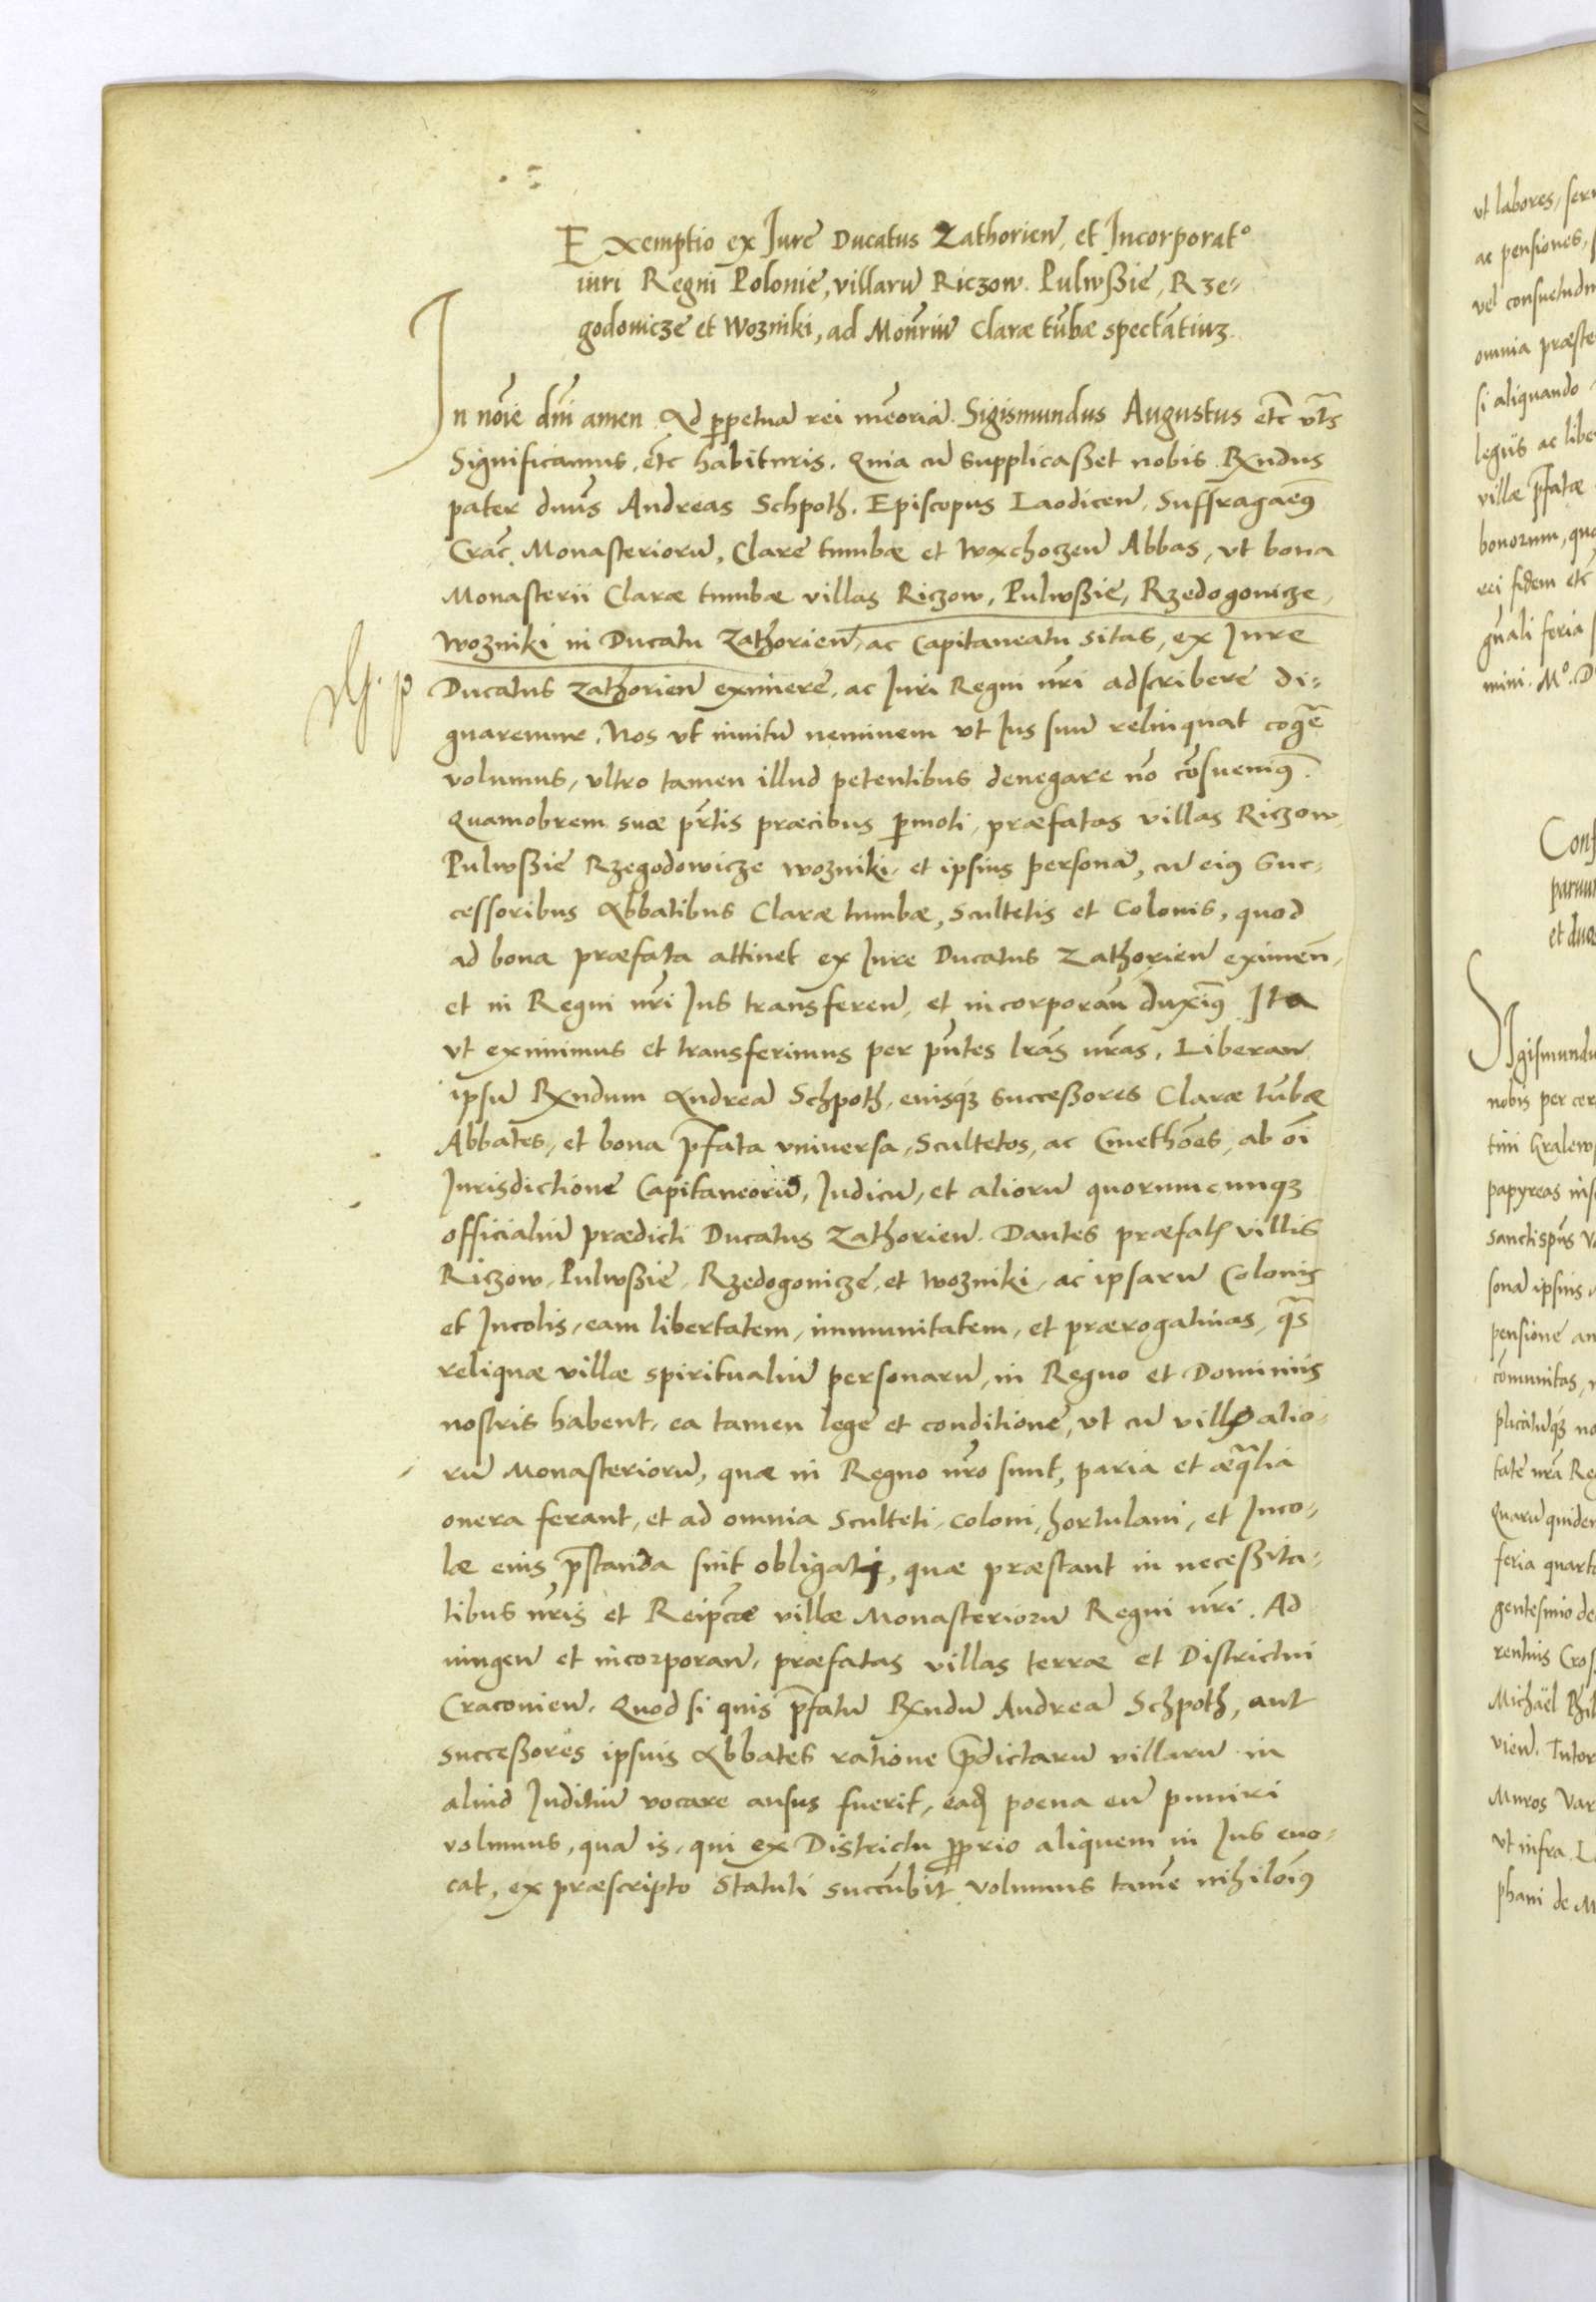 Exemptio ex Jure Ducatus Zathorien̄, et Incorporat°
iuri Regni Polonie, villarū Riczow. Pulwssie, Rze-
godowicze et Wozniki, ad Monr̄iū Claræ tūbæ spectātiuʒ.
In nōie dn̄i amen Ad ꝑpetuā rei mēoriā. Sigismundus Augustus etc̄ vt̄s
Significamus, etc̄ habituris. Quia cū supplicasset nobis Rx̄ndus
pater dnūs Andreas Schpoth. Episcopus Laodicen̄, Suffragaēꝰ
Crac̄. Monasteriorū, Clare tumbæ et Waxchoczen̄ Abbas, vt bona
Monasterii Claræ tumbæ villas Riczow, Pulwssie, Rzedogowicze,
Wozniki in Ducatu Zathorien̄, ac Capitaneatu sitas, ex Jure
Ducatus Zathorien̄ eximere, ac Juri Regni nr̄i adscribere di-
gnaremur. Nos vt inuitū neminem vt Jus suū relinquat cogē
volumus, vltro tamen illud petentibus denegare nō cōsueuimꝰ.
Quamobrem suæ pr̄tis præcibus ꝑmoti, præfatas villas Riczow,
Pulwssie Rzegodowicze Wozniki, et ipsius personā, cū eiꝰ Suc-
cessoribus Abbatibus Claræ tumbæ, Scultetis et Colonis, quod
ad bona præfata attinet ex Jure Ducatus Zathorien̄ eximen̄,
et in Regni nr̄i Jus transferen̄, et incorporan̄ duximꝰ Ita
vt eximimus et transferimus per pn̄tes lrās nrās, Liberan̄
ipsū Rx̄ndum Andreā Schpoth, eiusqʒ successores Claræ tūbæ
Abbates, et bona p̄fata vniuersa, Scultetos, ac Cmethōes, ab oī
Jurisdictione Capitaneorū, Judicū, et aliorū quorumcunqʒ
officialiū prædicti Ducatus Zathorien̄. Dantes præfatꝭ villis
Riczow, Pulwssie, Rzedogowicze, et Wozniki, ac ipsarū Colonis
et Incolis, eam libertatem, immunitatem, et prærogatiuas, qās
reliquæ villæ spiritualiū personarū, in Regno et Dominiis
nostris habent, ea tamen lege et conditione, vt cū villis alio-
rū Monasteriorū, quæ in Regno nr̄o sunt, paria et æqālia
onera ferant, et ad omnia Sculteti, coloni, hortulani, et Inco-
læ eius p̄standa sint obligati, quæ præstant in necessita-
tibus nr̄is et Reipcæ villæ Monasteriorū Regni nr̄i. Ad
iungen̄ et incorporan̄, præfatas villas terræ et Districtui
Cracouien̄. Quod si quis p̄fatū Rx̄ndū Andreā Schpoth, aut
successores ipsius Abbates ratione p̄dictarū villarū in
aliud Juditiū vocare ausus fuerit, eadꝫ poena eū puniri
volumus, qua is, qui ex Districtu ꝓprio aliquem in Jus euo-
cat, ex præscripto Statuti succūbit, volumus tamē nihilōiꝰ
vt labores, ser
ac pensiones,
vel consuetudin
omnia præste
si aliquando
legiis ac libe
villæ p̄fatæ
bonorum, qua
rei fidem etc
gn̄ali feria
mini. M°. D
Conf
paruu
et duo
Sigismundu
nobis per cer
tini Gralew
papyreas ins
sanctisp̄us V
sonā ipsius
pensione an
cōmunitas,
plicatūqʒ no
tatē nrā Re
Quarū quiden
feria quarta
gentesimo de
rentius Cros
Michael Phil
vien̄. Tutor
Muros Var
vt infra. L
phani de M